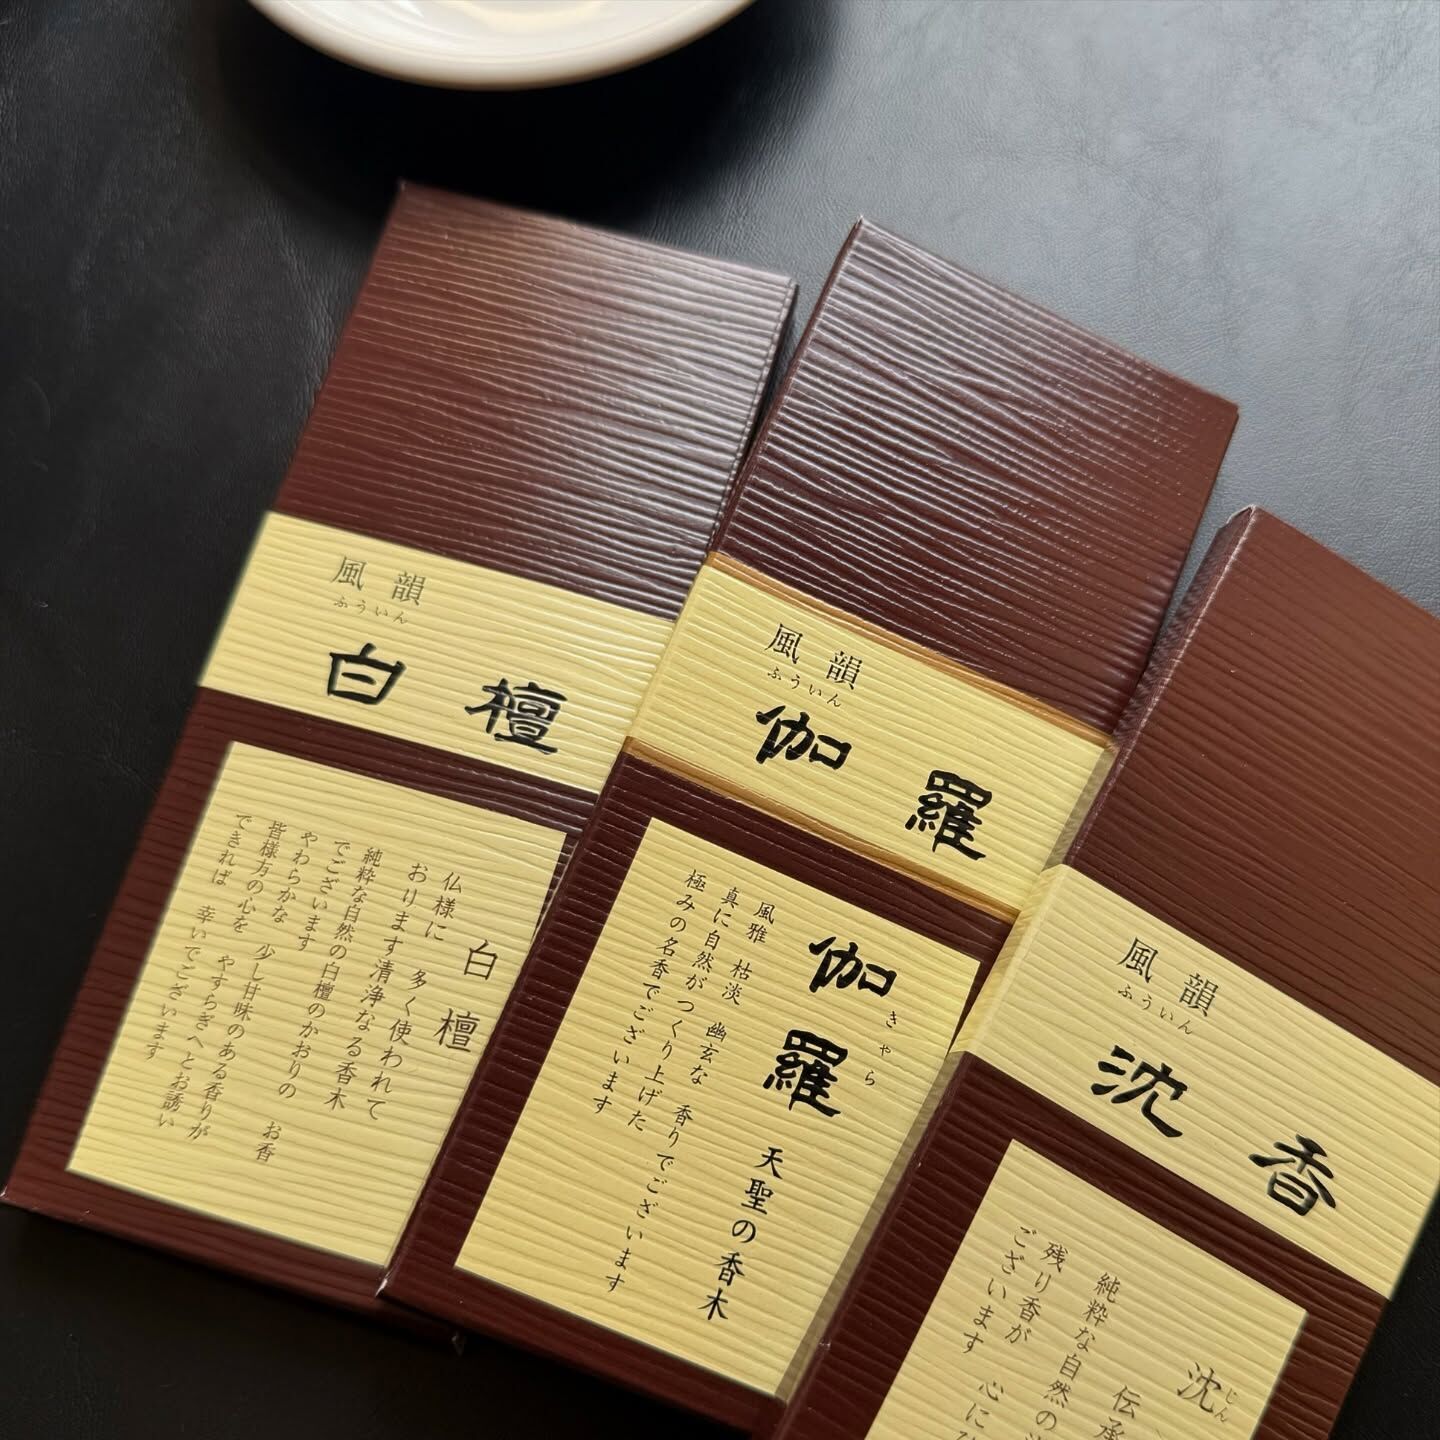 風韻
ふういん
白檀
白檀
仏様に 多く使われて
おります清浄なる香木
純粋な自然の白檀のかおりの
でございます
やわらかな 少し甘味のある香りが お香
皆様方の心を やすらぎへとお誘い
できれば 幸いでございます
風韻
ふういん
伽羅
伽羅 天聖の香木
きゃら
風雅 枯淡 幽玄な 香りでございます
真に自然がつくり上げた
極みの名香でございます
風韻
ふういん
沈香
沈
じん
伝承
純粋な自然の
残り香が 心に
ございます